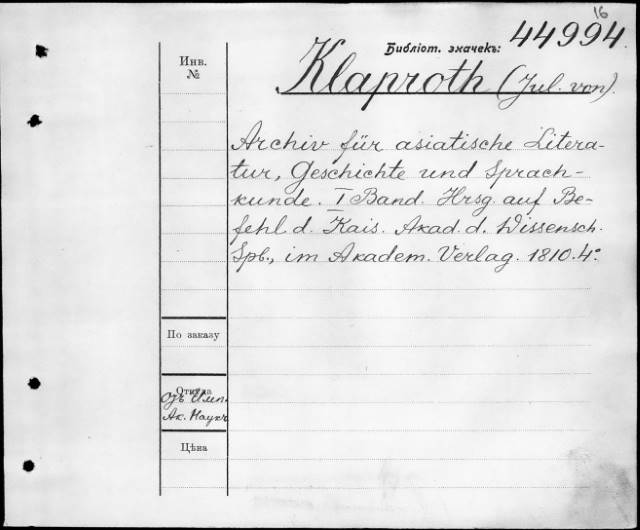 16
Библіот. значекъ: 44994.
Klaproth (Jul. von).
Инв.
№
Archiv für asiatische Litera-
tur, Geschichte und Sprach-
kunde. I Band. Hrsg. auf Be-
fehl d. Kais. Akad. d. Wissensch.
Spb., im Akadem. Verlag. 1810. 4°.
По заказу
Откуда
Отъ Имп.
Ак. Наукъ
Цѣна